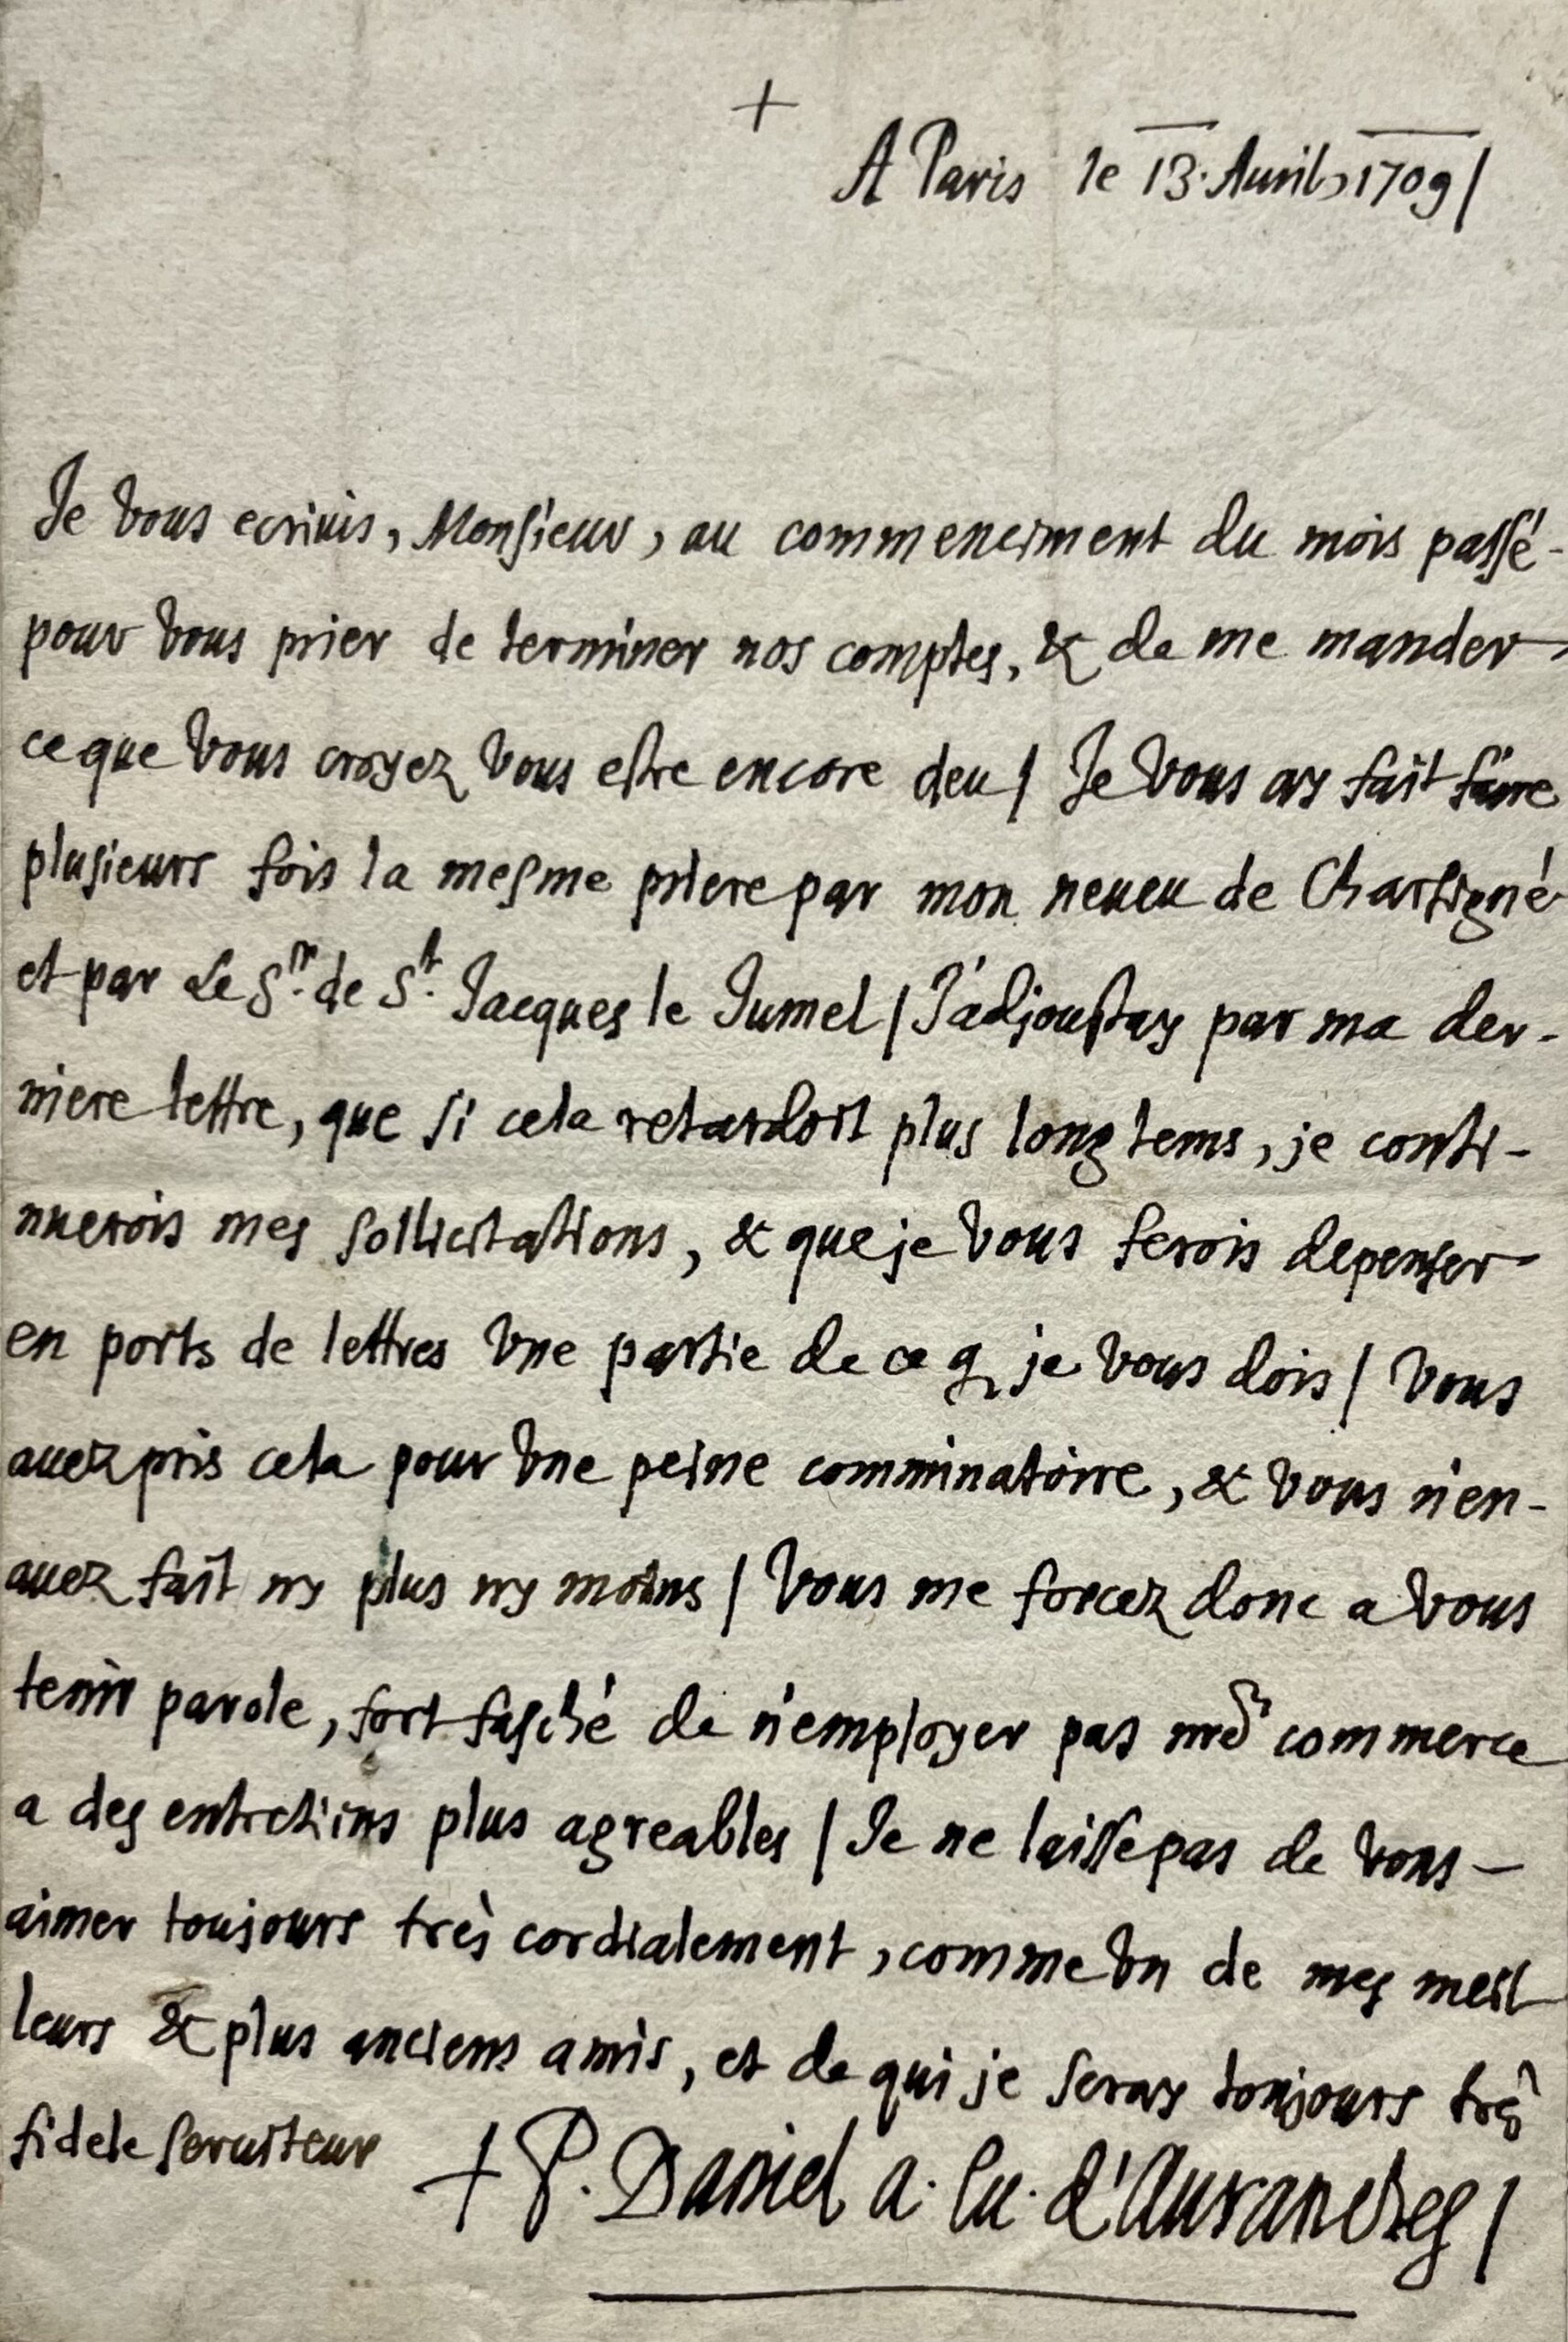 +
A Paris le 13. Auril, 1709 /
Je vous ecriuis, Monsieur, au commencement du mois passé-
pour vous prier de terminer nos comptes, & de me mander
ce que vous croyez vous estre encore deu / Je vous ay fait faire
plusieurs fois la mesme priere par mon neueu de Charsigné
et par Le Sr. de St. Jacques le Jumel / J'adjoustay par ma der-
niere lettre, que si cela retardoit plus long tems, je conti-
nuerois mes sollicitations, & que je vous ferois depenser
en ports de lettres vne partie de ce q je vous dois / Vous
auez pris cela pour vne peine comminatoire, & vous n'en-
auez fait ny plus ny moins / Vous me forcez donc a vous
tenir parole, fort fasché de n'employer pas nre commerce
a des entretiens plus agreables / Je ne laisse pas de vous-
aimer toujours très cordialement, comme vn de mes meil
leurs & plus anciens amis, et de qui je seray toujours tres
fidele seruiteur
+ P. Daniel a. eu. d'Auranches /